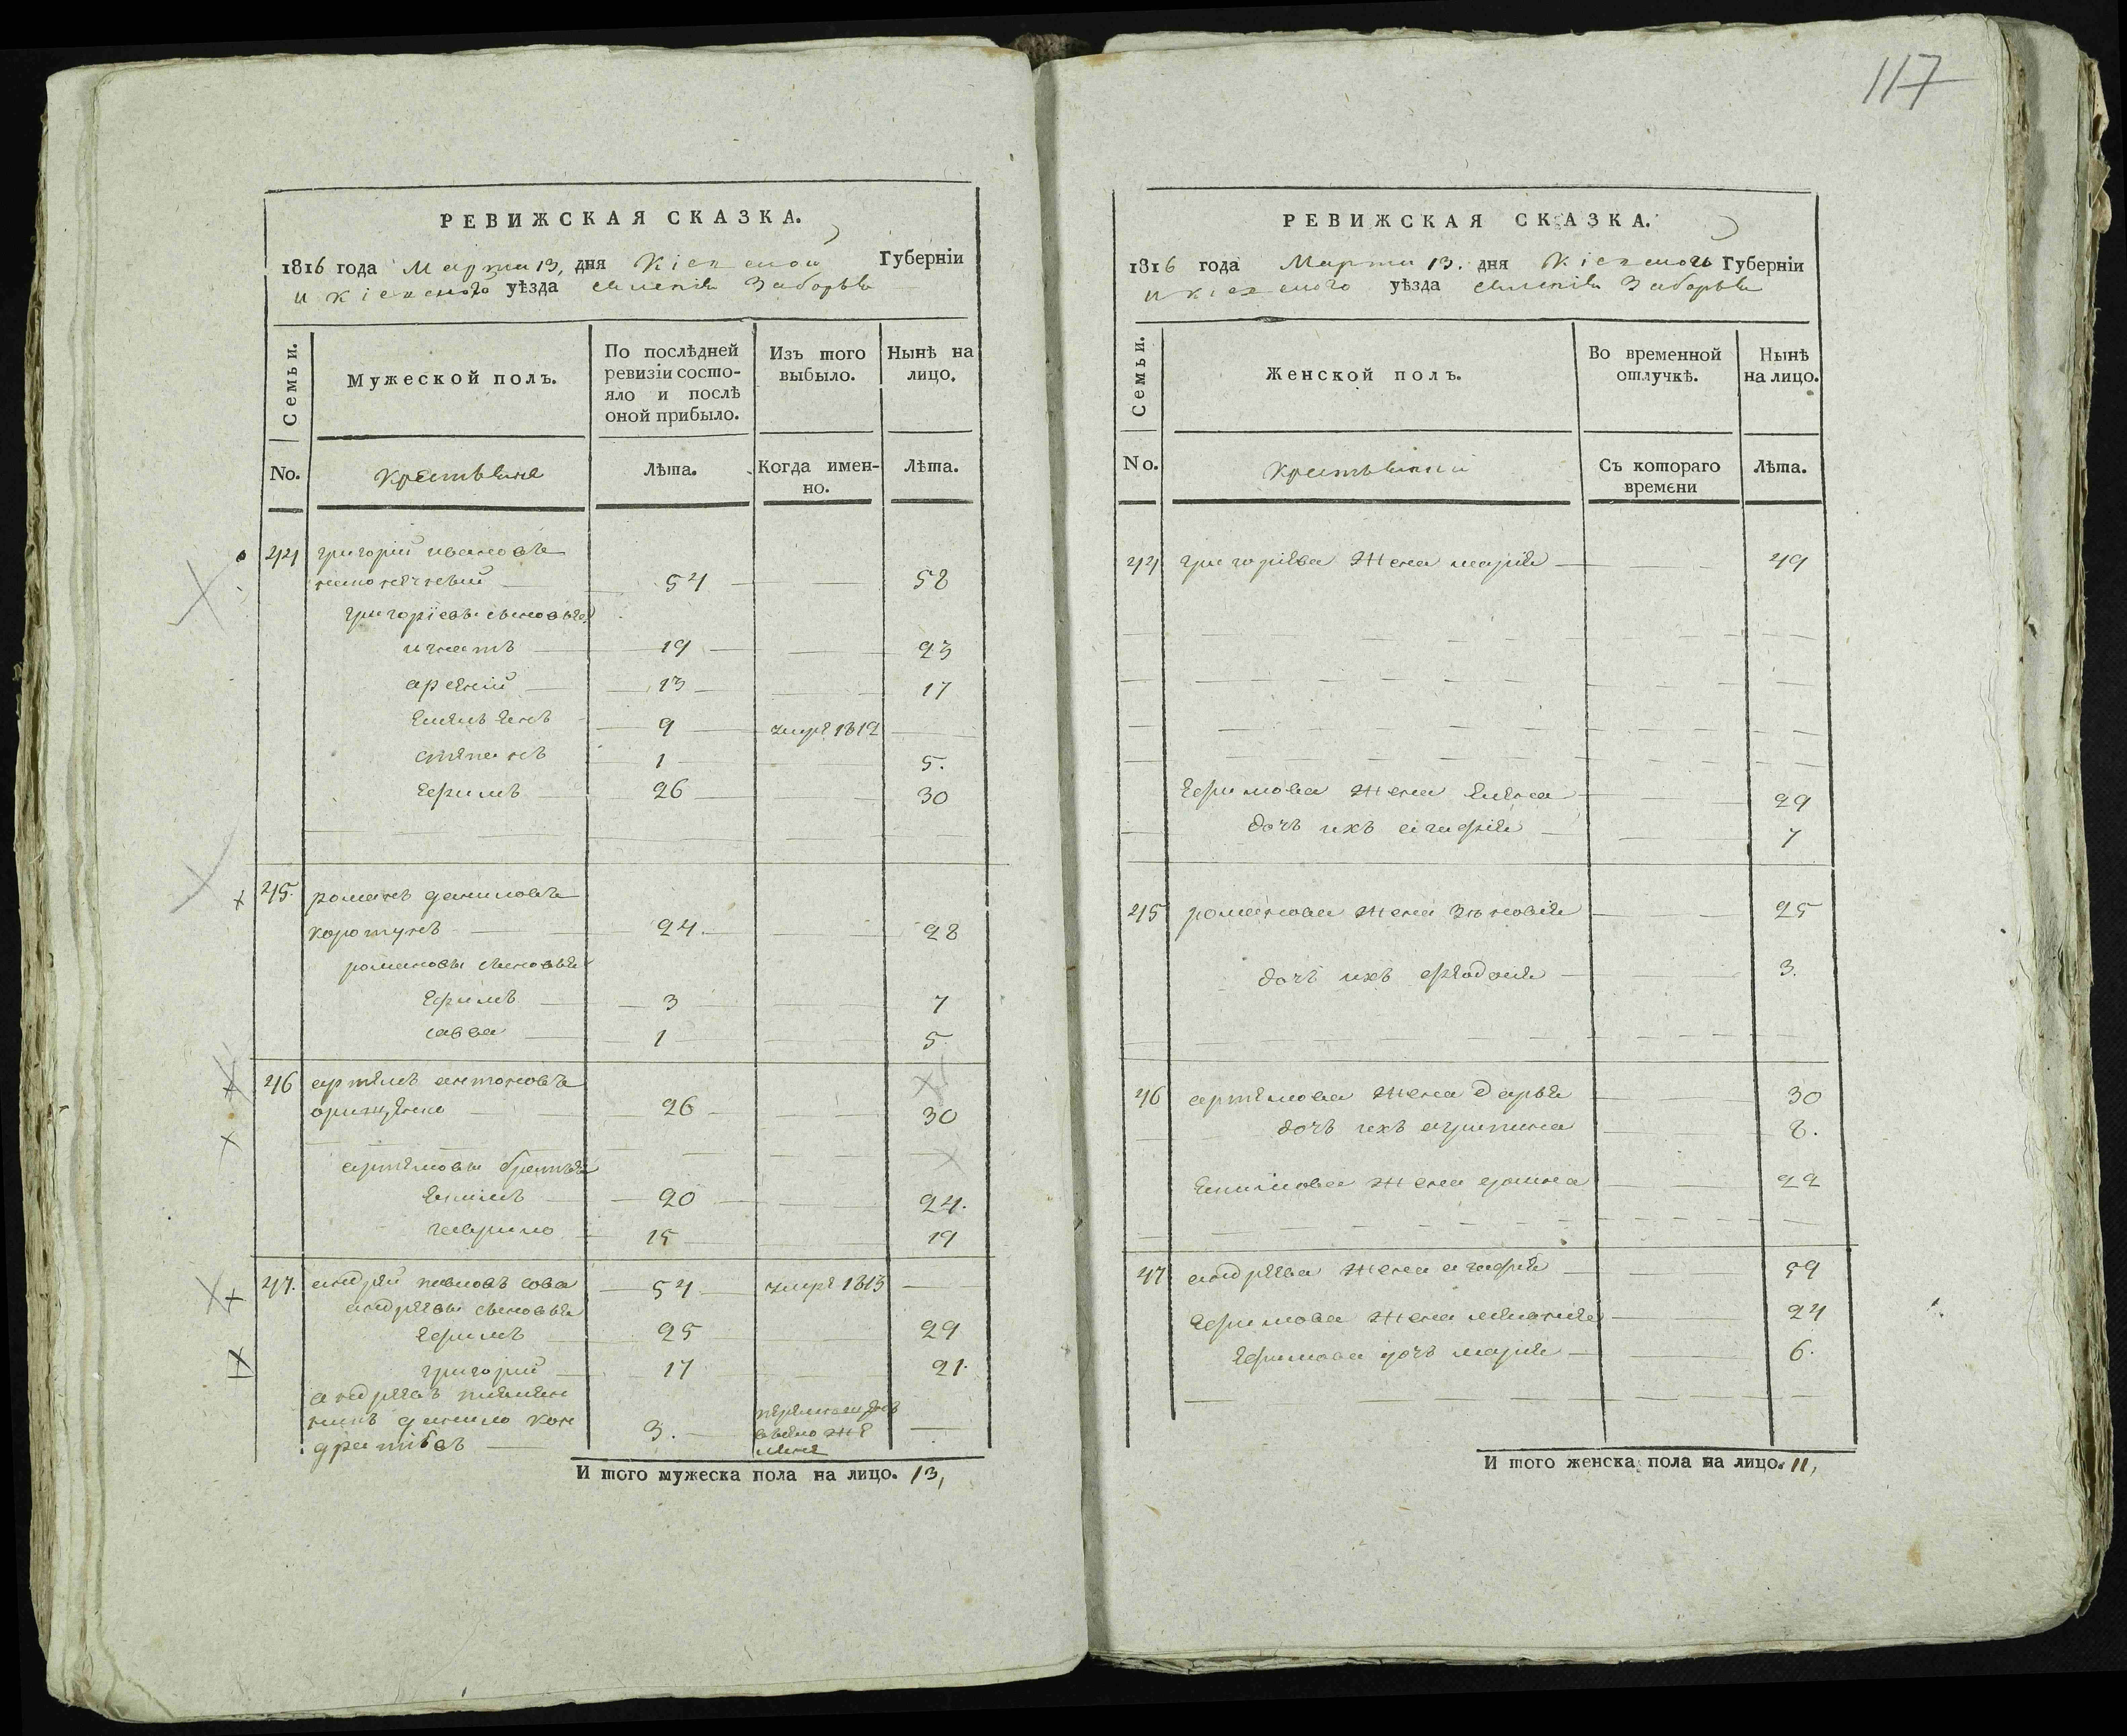 117
РЕВИЖСКАЯ СКАЗКА.
1816 года Марта 13, дня Кіевской Губерніи
и кіевского уѣзда селенія Заборья
Семьи.
Мужеской полъ.
По послѣдней ревизіи состо-
яло и послѣ оной прибыло.
Изъ того выбыло.
Нынѣ на лицо.
No.
крестьяне
Лѣта.
Когда имен-
но.
Лѣта.
44 григорій ивановъ
54 58
григоріевы сыновья
игнатъ 19 23
арсеній 13 17
емельянъ 9 умре 1812
степанъ 1 5.
ефимъ 26 30
45. романъ даниловъ
коротунъ 24. 28
романовы сыновья
ефимъ 3 7
савва 1 5
46 артемъ антоновъ
26 30
артемовы братья
екимъ 20 24.
гаврило 15 19
47. андрей павловъ сова 54 умре 1813
андреевы сыновья
ефимъ 25 29
григорій 17 21.
андреевъ племян
никъ данило кон
дратіевъ 3.
И того мужеска пола на лицо. 13,
РЕВИЖСКАЯ СКАЗКА.
1816 года Марта 13. дня Кіевской Губерніи
и кіевского уѣзда селенія Заборья
Семьи.
Женской полъ.
Во временной отлучкѣ.
Нынѣ на лицо.
No.
крестьянки
Съ котораго времени
Лѣта.
44 григоріева жена марія 49
ефимова жена елена 29
дочь ихъ агафія 7
45 романова жена зѣновія 25
дочь ихъ федосія 3.
46 артемова жена дарья 30
дочь ихъ агрипина 8.
екимова жена домна 22
47 андреева жена агафія 59
ефимова жена меланія 24
ефимова дочь марія 6.
И того женска пола на лицо. 11,